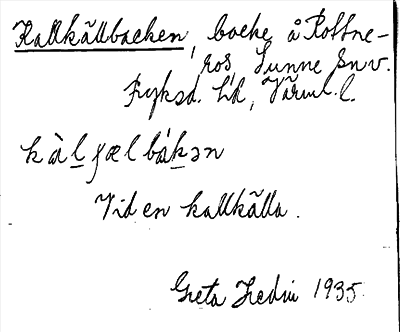 Kallkällbacken, backe å Rottne-
ros Sunne sn v.
Fryksd. hd, Värml. l.
kàl̠ ɟælbák̠ən
Vid en kallkälla.
Greta Hedin 1935.